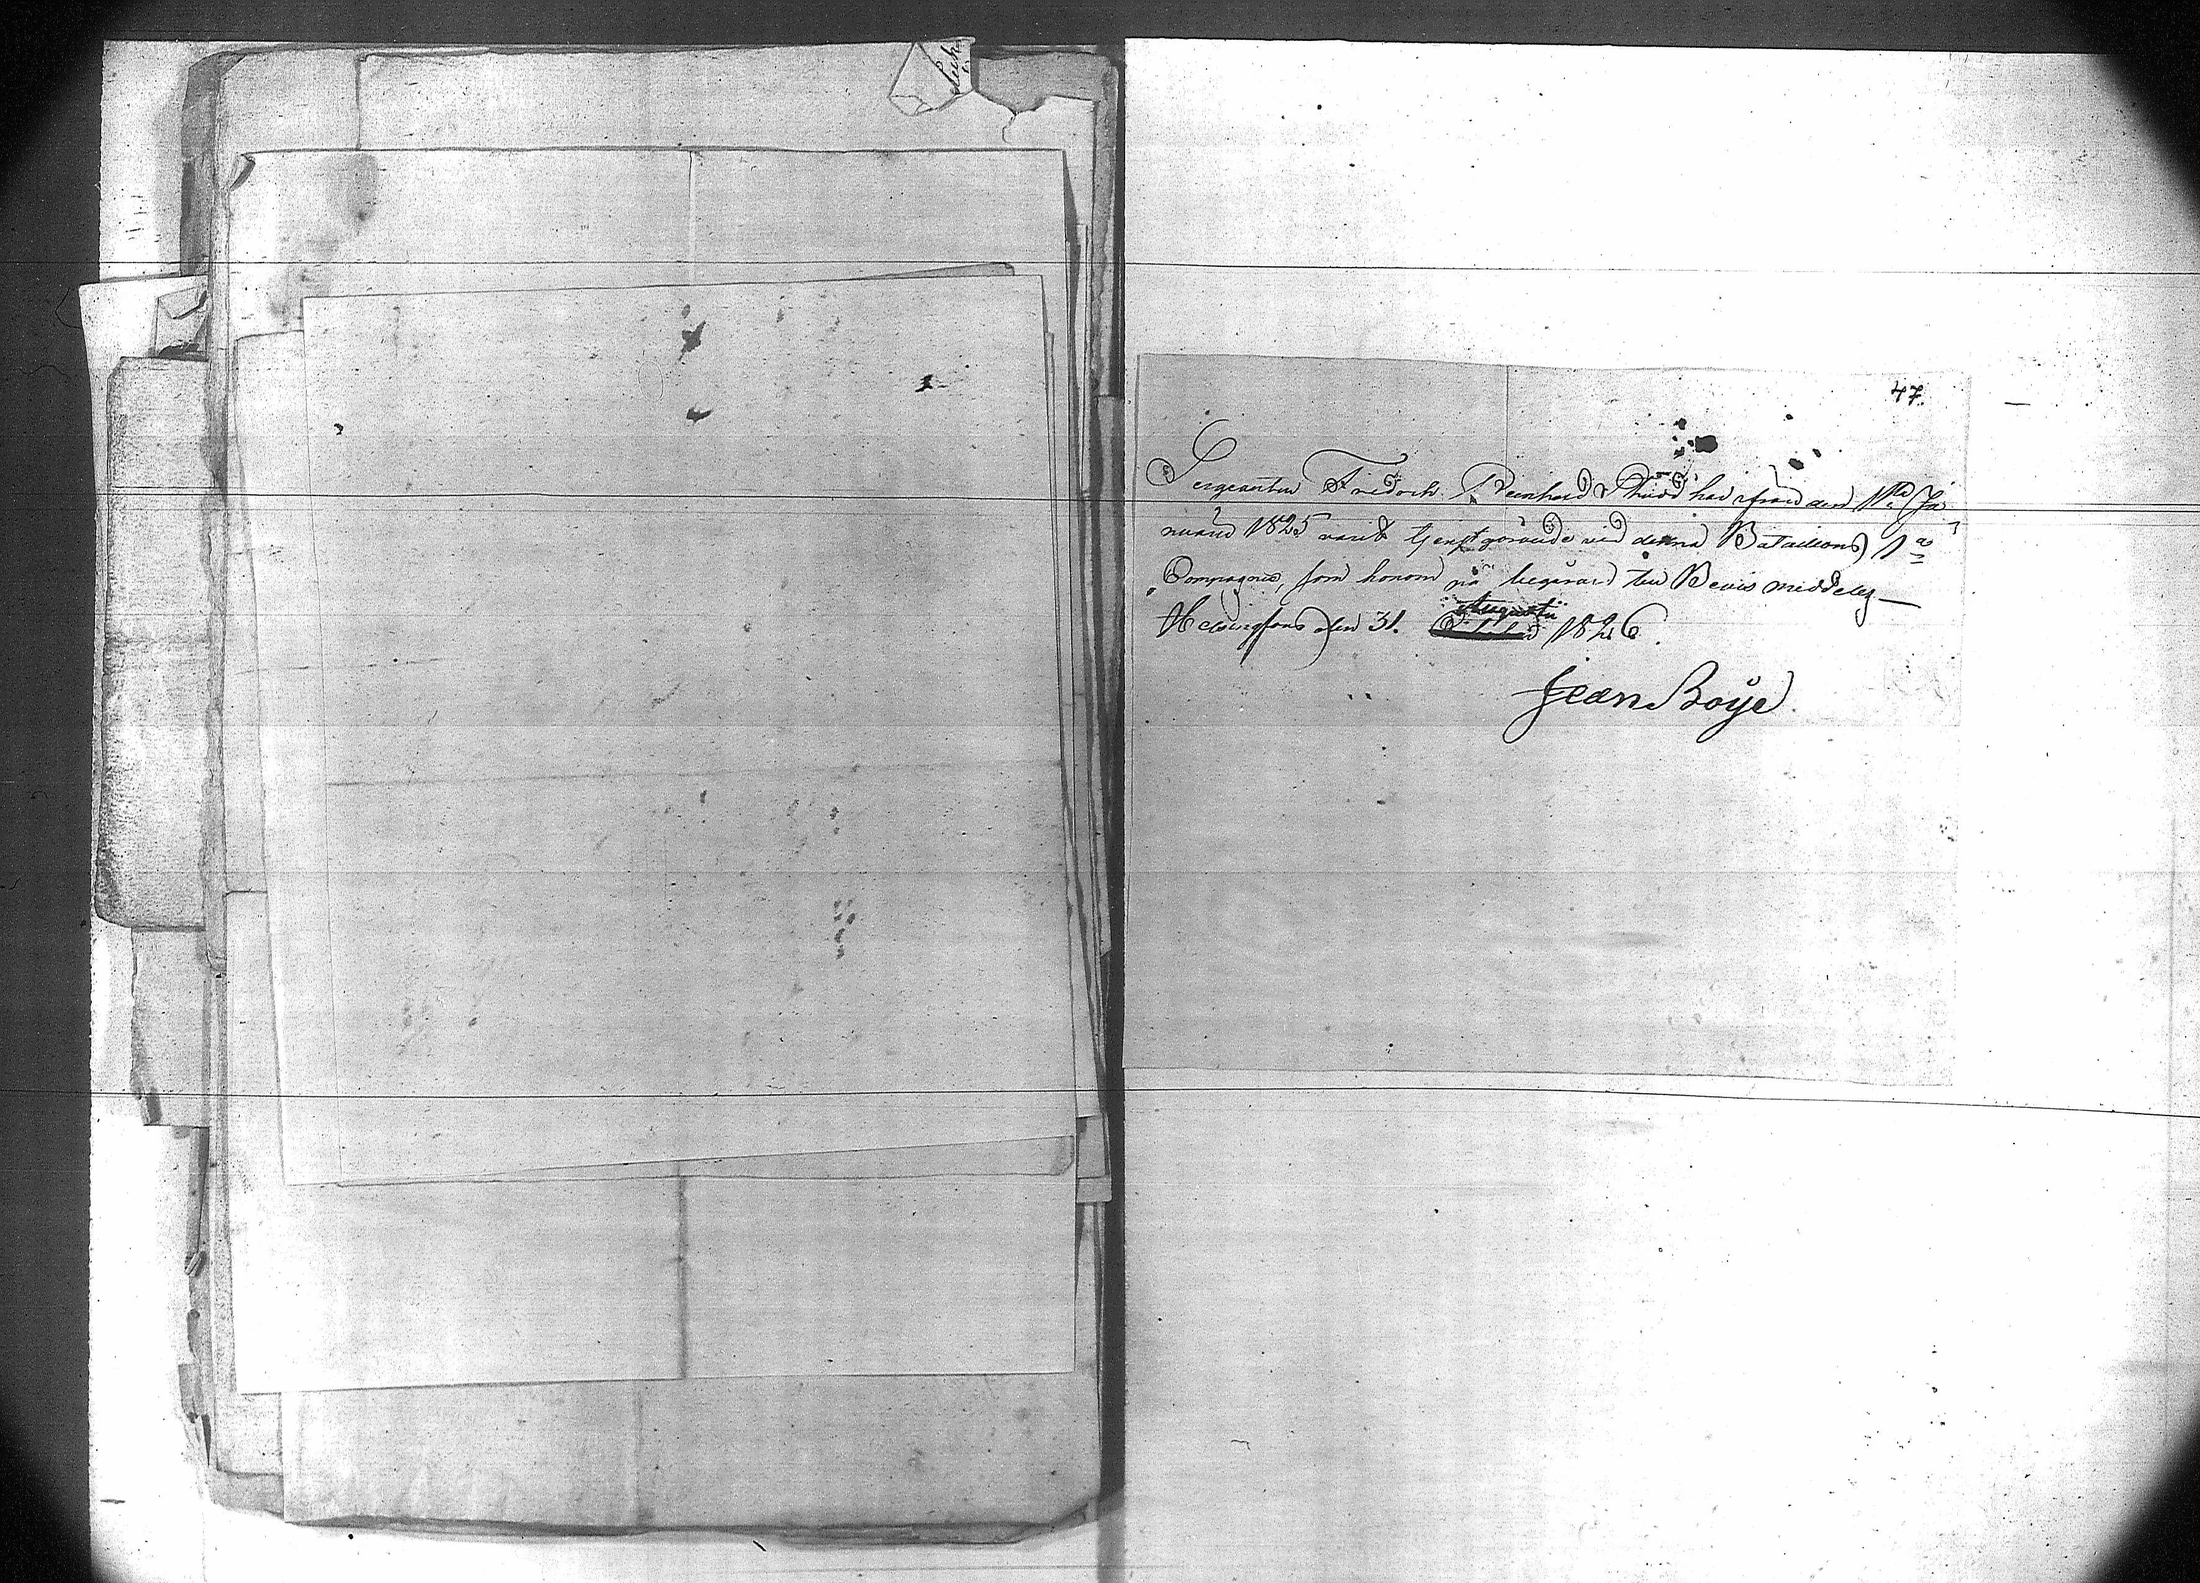 47.
Sergeanten Friedrich Reinhold har ifrån den 1sta Ja-
nuarii 1825 varit tjenstgörande vid denna Bataillons 1a
Compagnie, som honom på begäran till Bevis meddelas.—
Helsingfors den 31. Augusti 1826.
Jean Boije